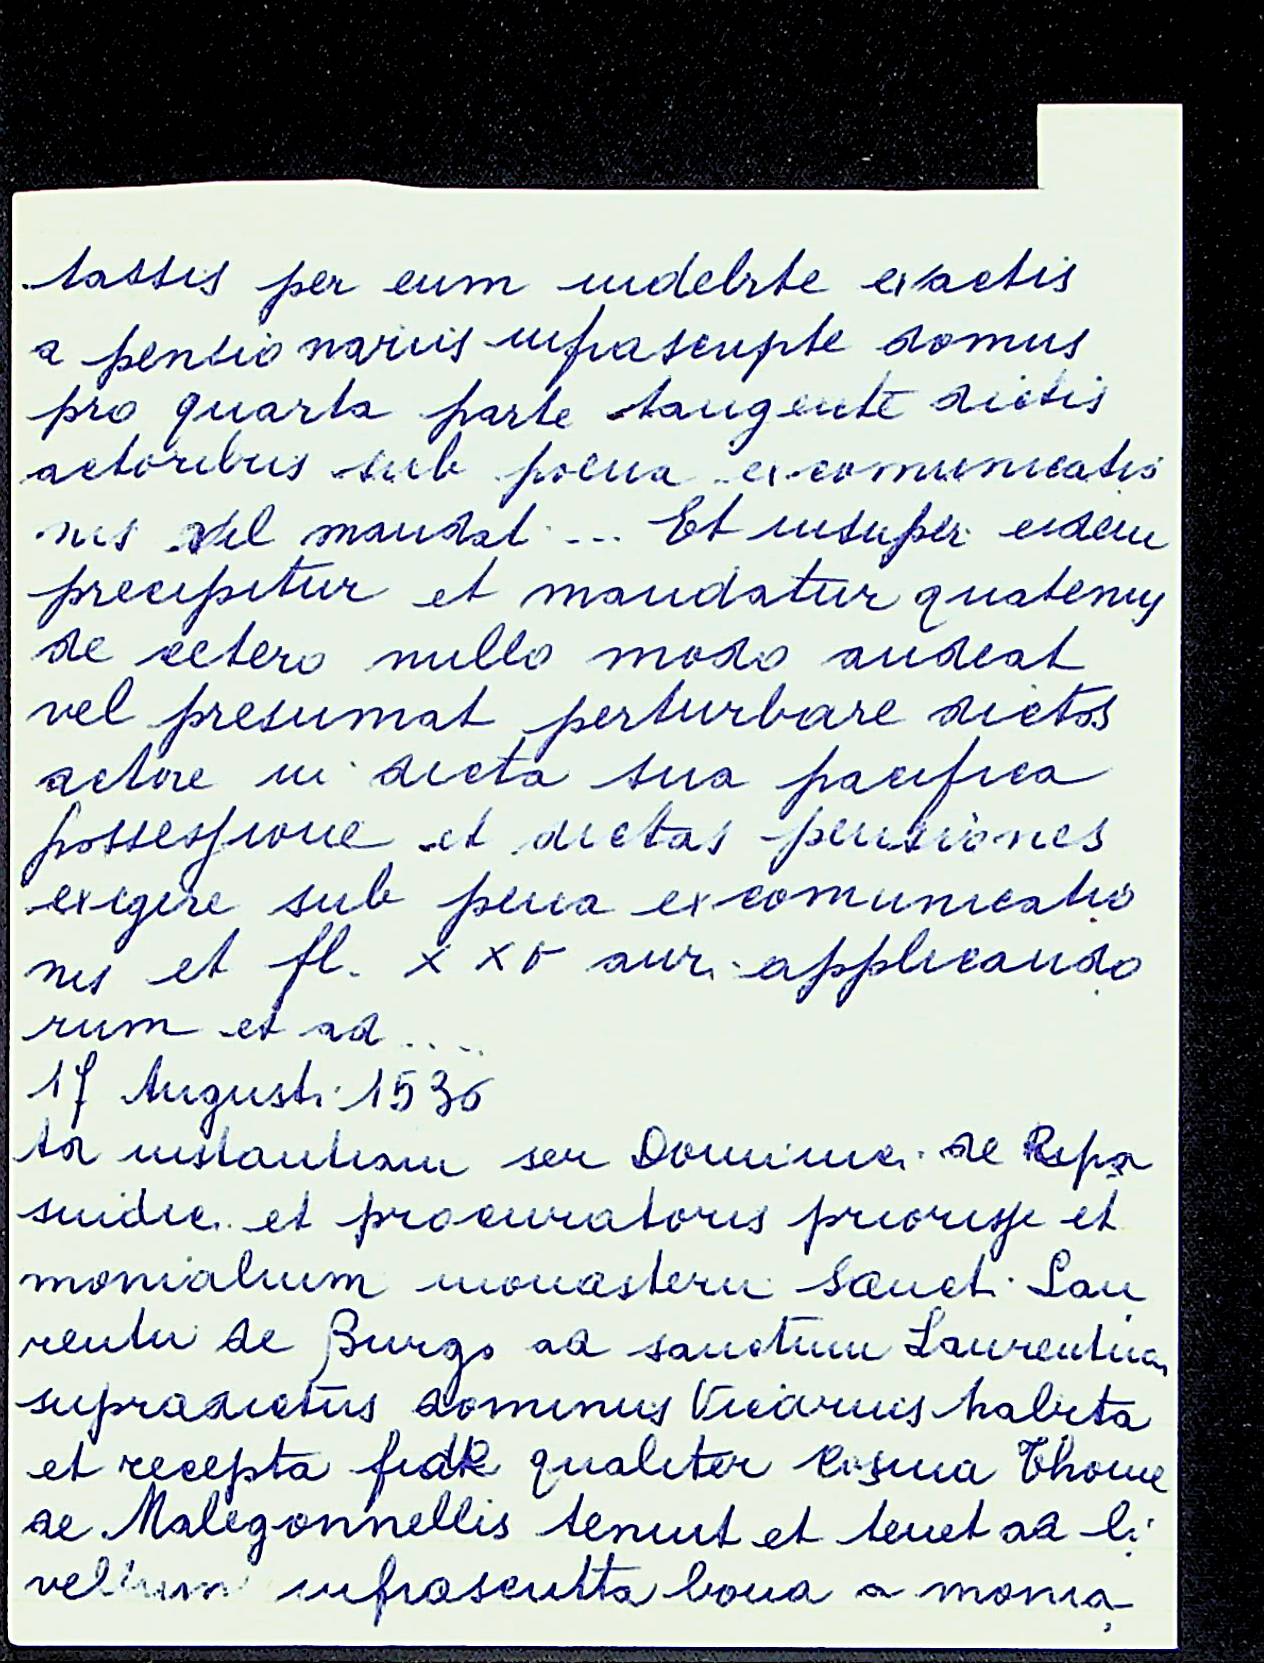 tassis per eum indebite exactis
a pensionariis infrascripte domus
pro quarta parte tangente dictis
actoribus sub poena excomunicatio
nis vel mandat ... Et insuper eidem
precipitur et mandatur quatenus
de cetero nullo modo audeat
vel presumat perturbare dictos
actore in dicta sua pacifica
possessione et dictas pensiones
exigere sub pena excomunicatio
nis et fl. XXV aur. applicando
rum et ad ....
17 Augusti 1536
Ad instantiam ser Dominici de Ripa
sindici et procuratoris priorisse et
monialium monasterii Sancti Lau
rentii de Burgo ad sanctum Laurentium
supradictus dominus Vicarius habita
et recepta fide qualiter Cosma Thome
de Malegonnellis tenuit et tenet ad li
vellum infrascritta bona a monia